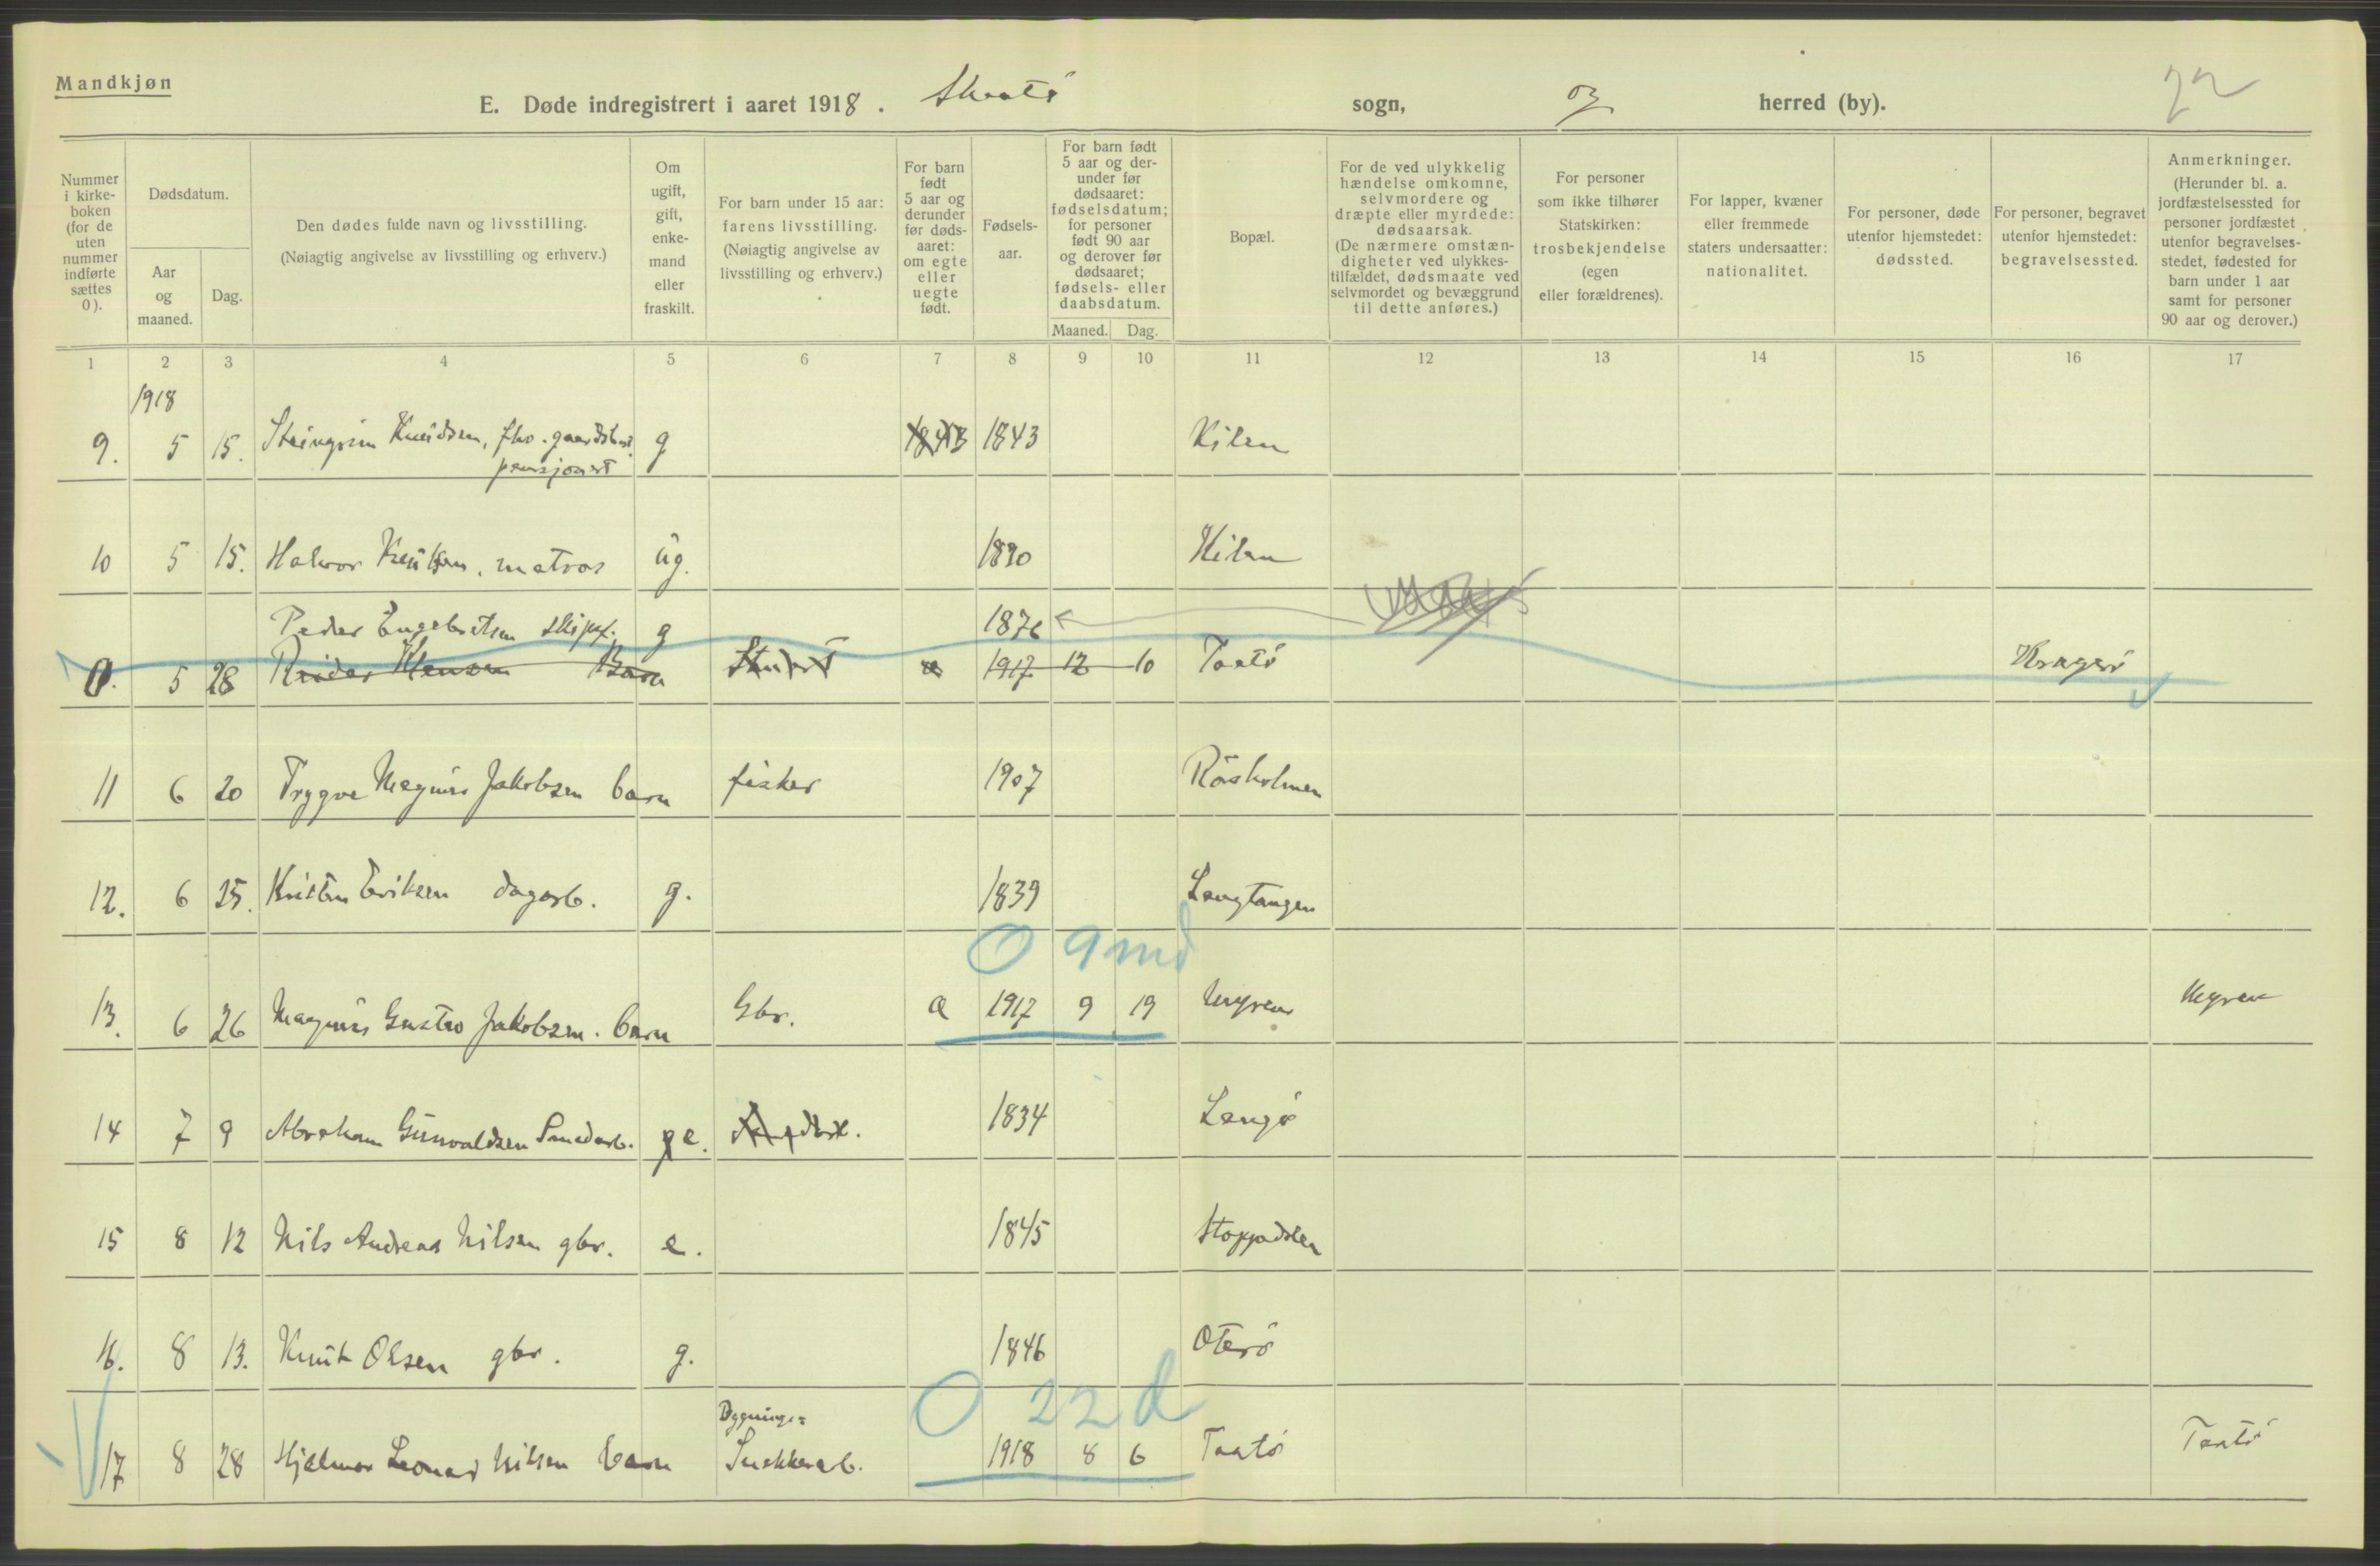 Mandkjøn
E. Døde indregistrert i aaret 1918. Skaatö sogn, og herred (by). 22
Nummer i kirke- boken (for de uten nummer indførte sættes 0).
Dødsdatum.
Aar og maaned.
Dag.
Den dødes fulde navn og livsstilling.
(Nøiagtig angivelse av livsstilling og erhverv.)
Om ugift, gift, enke- mand eller fraskilt.
For barn under 15 aar: farens livsstilling.
(Nøiagtig angivelse av livsstilling og erhverv.)
For barn født 5 aar og derunder før døds- aaret: om egte eller uegte født.
Fødsels- aar.
For barn født 5 aar og der- under før dødsaaret: fødselsdatum; for personer født 90 aar og derover før dødsaaret; fødsels- eller daabsdatum.
Maaned. Dag.
Bopæl.
For de ved ulykkelig hændelse omkomne, selvmordere og dræpte eller myrdede: dødsaarsak.
(De nærmere omstæn- digheter ved ulykkes- tilfældet, dødsmaate ved selvmordet og bevæggrund til dette anføres.)
For personer som ikke tilhører Statskirken: trosbekjendelse (egen eller forældrenes).
For lapper, kvæner eller fremmede staters undersaatter: nationalitet.
For personer, døde utenfor hjemstedet: dødssted.
For personer, begravet utenfor hjemstedet: begravelsessted.
Anmerkninger.
(Herunder bl. a. jordfæstelsessted for personer jordfæstet utenfor begravelses- stedet, fødested for barn under 1 aar samt for personer 90 aar og derover.)
1 2 3 4 5 6 7 8 9 10 11 12 13 14 15 16 17
1918
9. 5 15. Steingrim Knudsen, fhv. gaardbr. g 1843 1843 Kilen
pensjonist
10 5 15. Halvor Knutsen, matros ug. 1890 Kilen
Peder Engebretsen skipsf. g 1876
0. 5 28 Reidar Klausen Barn 1917 12 10 Taatö Kragerö
11 6 20 Trygve Magnus Jakobsen barn fisker 1907 Rösholmen
12. 6 25. Kristen Eriksen dagarb. g. 1839 Langtangen
0 9 md
13. 6 26 Magnus Gustav Jakobsen. barn Gbr. 1917 9 19 Myren Myren
14 7 9 Abraham Gunvaldsen Smedarb. g e. 1834 Langö
15 8 12 Nils Andreas Nilsen gbr. e. 1845 Stoppadalen
16. 8 13. Knut Olsen gbr. g. 1846 Oterö
0 22 d
Bygnings=
17 8 28 Hjalmar Leonard Nilsen barn Snekkerarb. 1918 8 6 Taatö Taatö